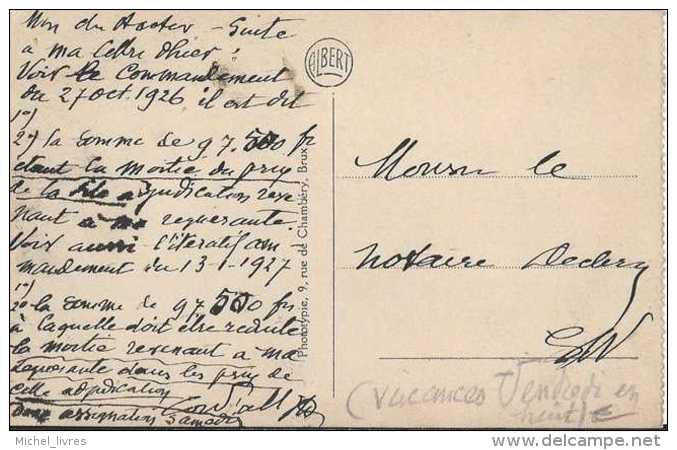 Suite
à ma lettre d'hier :
Voir le Commandement
du 27 oct. 1926 il est dit
1°)
2°) la somme de 97.500 fr
étant la moitié du prix
de la adjudication reve
nant à ma requérante.
Voir aussi l'itératif com
mandement du 13-1-1927
1°)
2° la somme de 97500 frs
à laquelle doit être réduite
la moitié revenant à ma
exposante dans le prix de
cette adjudication
assignation Samedi
ALBERT
Phototypie, 9, rue de Chambéry, Brux
le
notaire
EN
(vacances Vendredi en
Michel_livres
www.delcampe.net